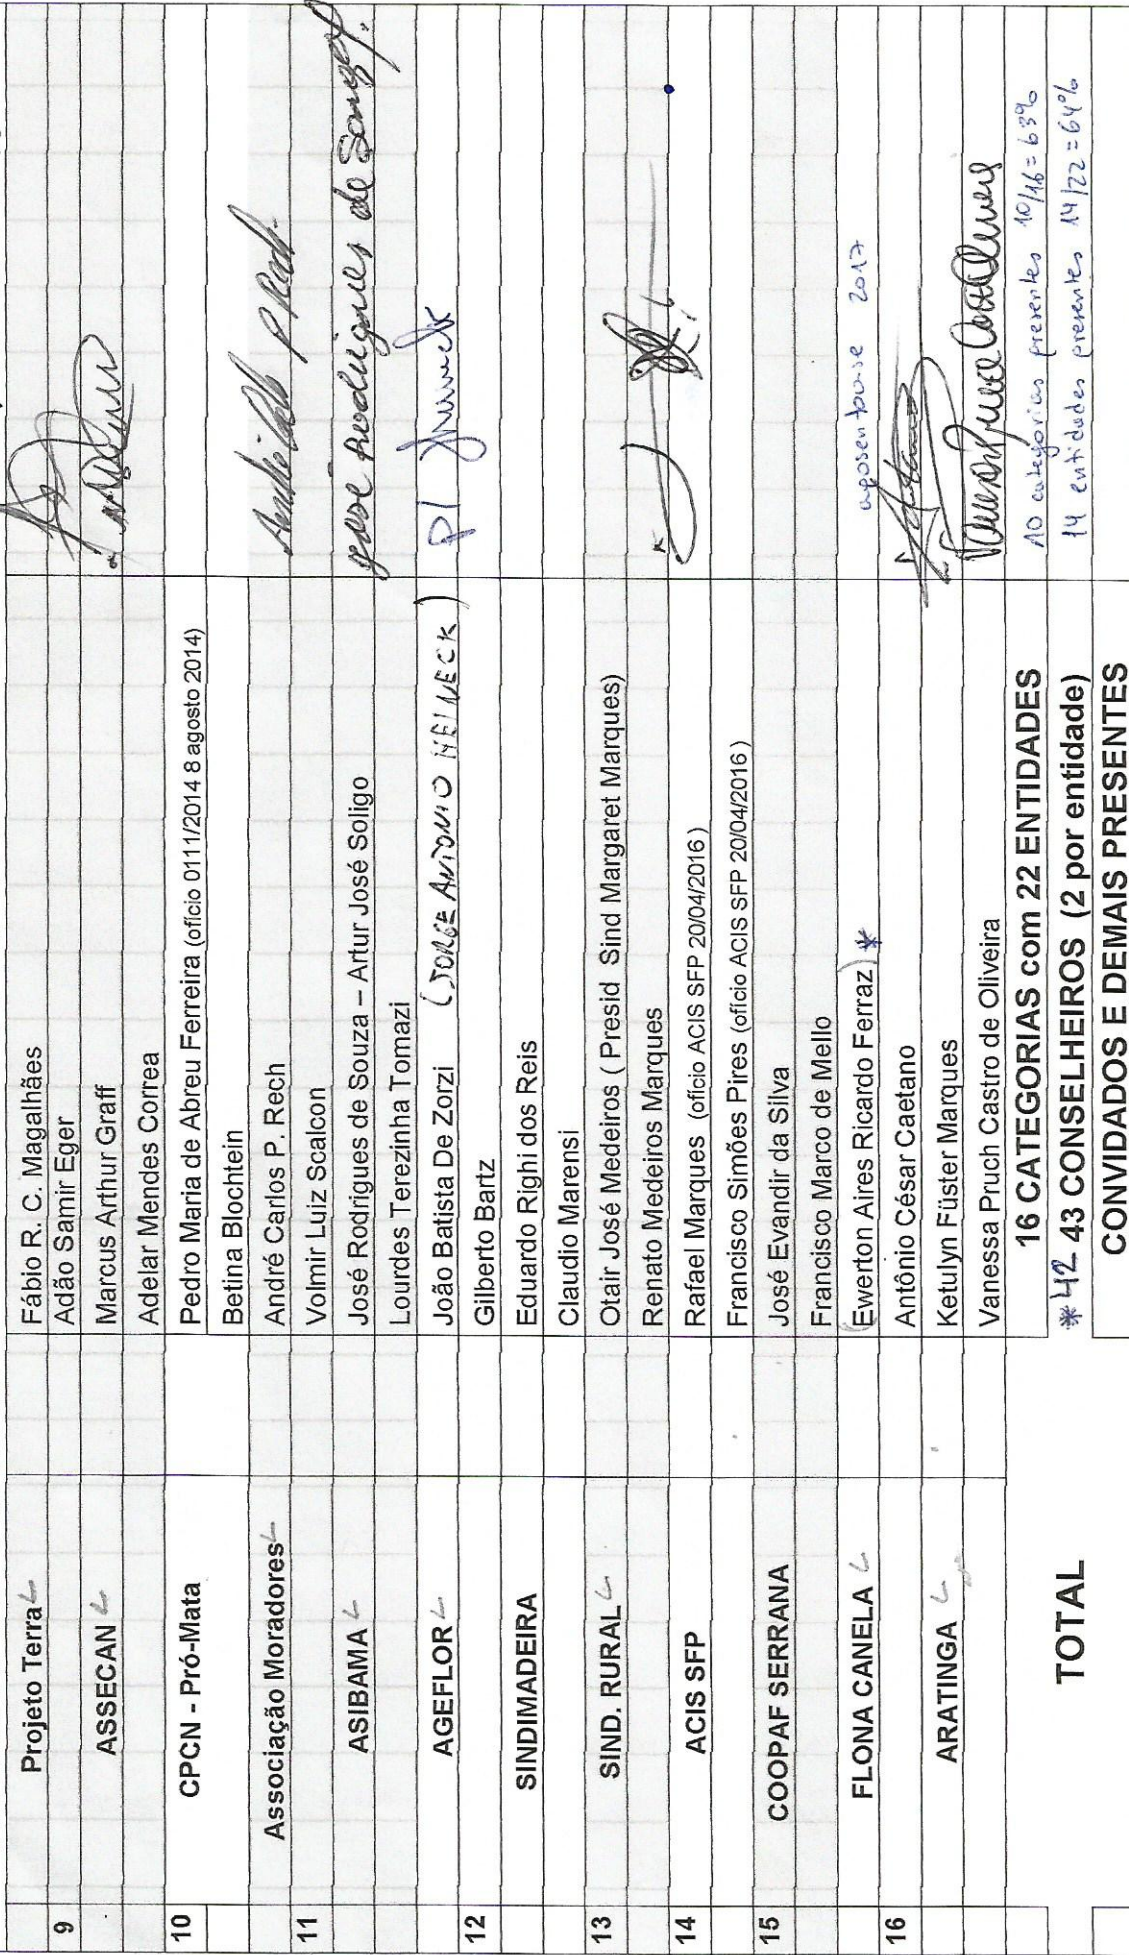 Projeto Terra
Fábio R. C. Magalhães
9
Adão Samir Eger
ASSECAN
Marcus Arthur Graff
Adelar Mendes Correa
10
CPCN - Pró-Mata
Pedro Maria de Abreu Ferreira (ofício 0111/2014 8 agosto 2014)
Betina Blochtein
Associação Moradores
André Carlos P. Rech
11
Volmir Luiz Scalcon
ASIBAMA
José Rodrigues de Souza – Artur José Soligo
José Rodrigues de Souza
Lourdes Terezinha Tomazi
AGEFLOR
João Batista De Zorzi (JORGE ANTONIO HEINECK)
P/
12
Gilberto Bartz
SINDIMADEIRA
Eduardo Righi dos Reis
Claudio Marensi
13
SIND. RURAL
Otair José Medeiros ( Presid Sind Margaret Marques)
Renato Medeiros Marques
14
ACIS SFP
Rafael Marques (ofício ACIS SFP 20/04/2016 )
Francisco Simões Pires (ofício ACIS SFP 20/04/2016 )
15
COOPAF SERRANA
José Evandir da Silva
Francisco Marco de Mello
FLONA CANELA
(Ewerton Aires Ricardo Ferraz) *
aposentou-se 2017
16
Antônio César Caetano
ARATINGA
Ketulyn Füster Marques
Vanessa Pruch Castro de Oliveira
TOTAL
16 CATEGORIAS com 22 ENTIDADES
10 categorias presentes 10/16 = 63%
*42 43 CONSELHEIROS (2 por entidade)
14 entidades presentes 14/22 = 64%
CONVIDADOS E DEMAIS PRESENTES